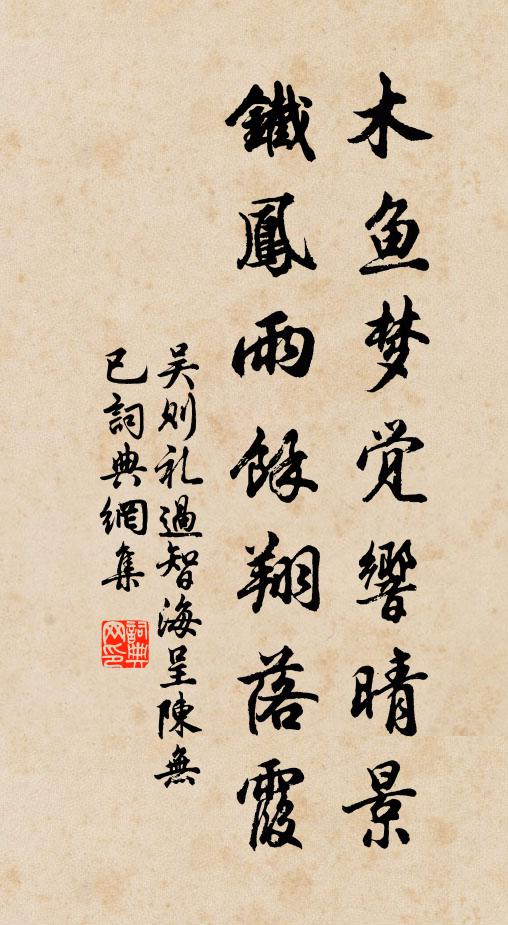 木鱼梦觉響晴景
鐵鳳雨餘翔落霞
吴则礼過智海呈陳無
已詞典網集
詞典網印